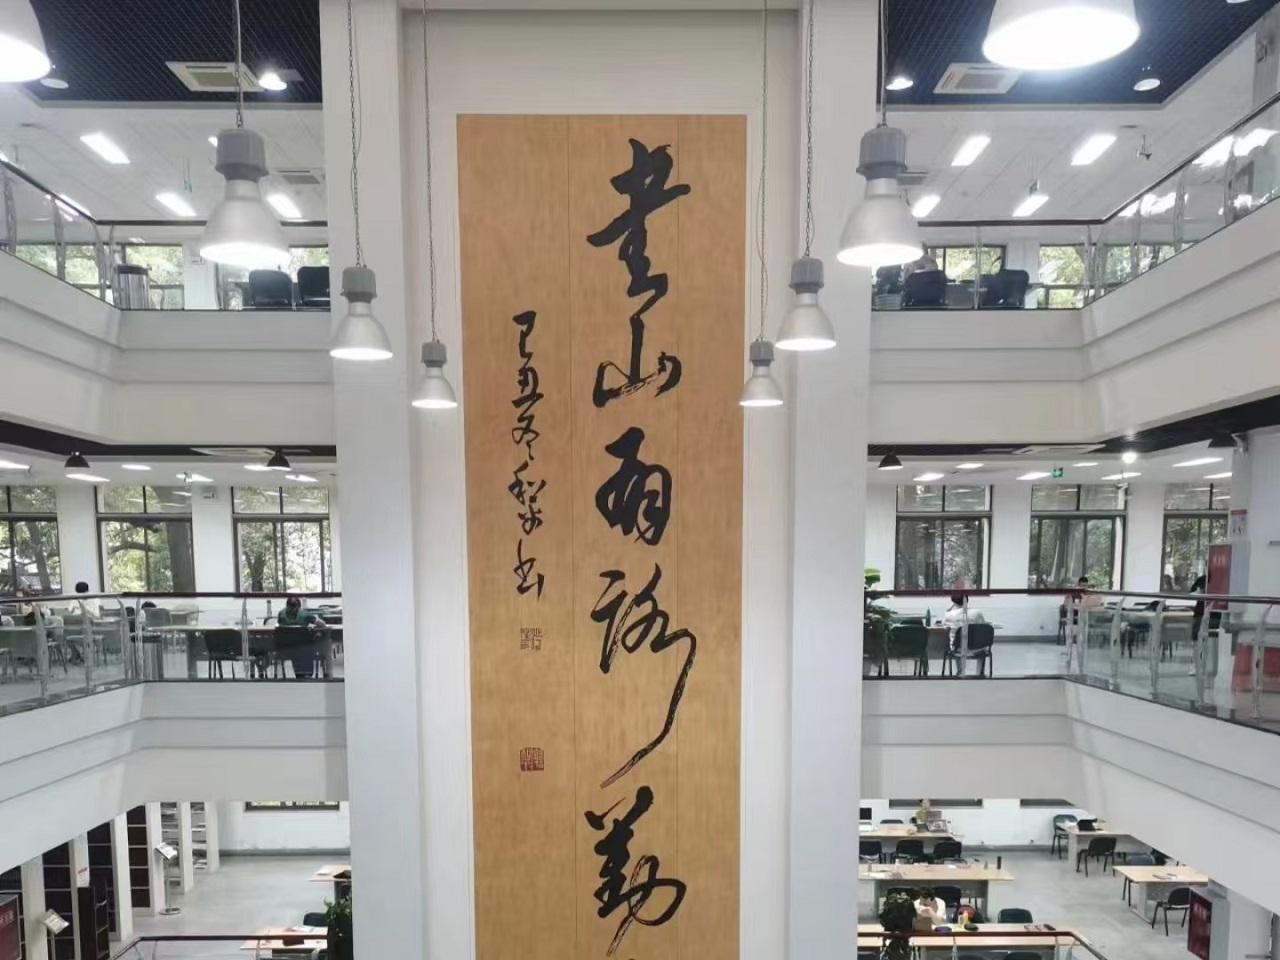 书山有路勤
己丑冬黎少书